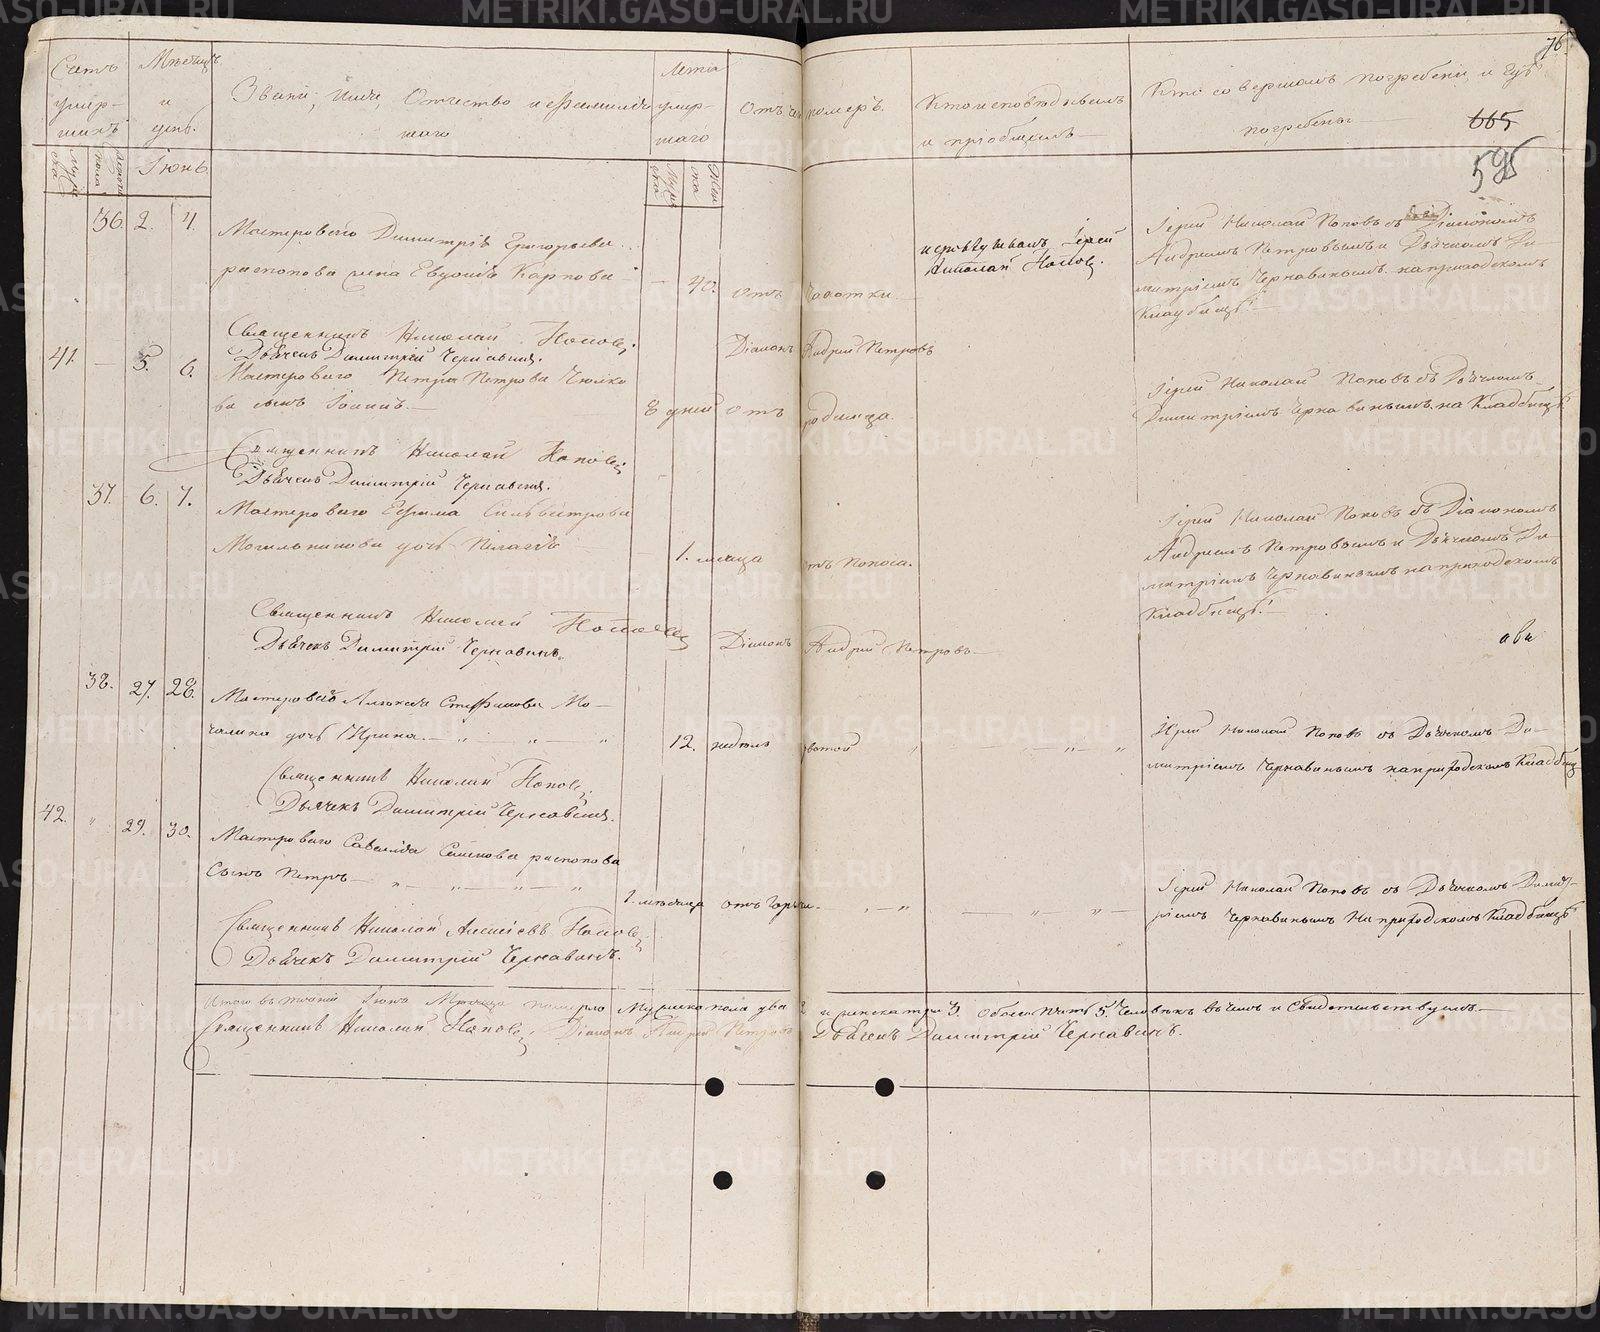 76.
Счетъ умер-шихъ
Мѣсяцъ и день.
Званіе, Имя, Отчество и фамилія умершаго
Лета умер-шаго
Отъ чего померъ.
Кто исповѣдывалъ и пріобщилъ
Кто совершалъ погребеніе и гдѣ погребены
665
595
Мужеска
женска
Іюнь.
Мужеска
Женска
36. 2. 4.
Мастероваго Димитрія Григорьева
распопова жена Евдокія Карпова
40.
отъ чахотки.
исповѣдывалъ Іерей
Николай Поповъ.
Іерей Николай Поповъ съ Діакономъ
Андреемъ Петровымъ и Дьячкомъ Ди-
митріемъ Чернавинымъ на приходскомъ
Кладбищѣ
Священникъ Николай Поповъ
Діаконъ Андрей Петровъ
Дьячекъ Димитрій Чернавинъ.
41. — 5. 6.
Мастероваго Петра Петрова
ва сынъ Іоаннъ.
8 дней
отъ родимца.
Іерей Николай Поповъ съ Дьячкомъ
Димитріемъ Чернавинымъ на Кладбищѣ
Священникъ Николай Поповъ
Дьячекъ Димитрій Чернавинъ.
37. 6. 7.
Мастероваго Ефима Сильвестрова
Могильникова дочь Пелагія
1. месяца
отъ поноса.
Іерей Николай Поповъ съ Діакономъ
Андреемъ Петровымъ и Дьячкомъ Ди-
митріемъ Чернавинымъ на приходскомъ
Кладбищѣ.
Священникъ Николай Поповъ
Діаконъ Андрей Петровъ
Дьячекъ Димитрій Чернавинъ.
38. 27. 28.
Мастероваго Алексея Стефанова Мо-
чалина дочь Ирина.
12. недель
Іерей Николай Поповъ съ Дьячкомъ Ди-
митріемъ Чернавинымъ на приходскомъ Кладбищѣ
Священникъ Николай Поповъ
Дьячекъ Димитрій Чернавинъ.
42. " 29. 30.
Мастероваго Савелія Семенова распопова
Сынъ Петръ
1. мѣсяца
отъ
Іерей Николай Поповъ съ Дьячкомъ Димит-
ріемъ Чернавинымъ на приходскомъ Кладбищѣ
Священникъ Николай Алексіевъ Поповъ
Дьячекъ Димитрій Чернавинъ.
Итого въ Іюнѣ Месяце померло Мужеска пола два 2 и женска три 3. Обоего пять 5. Человѣкъ въ чемъ и свидетельствуемъ.
Священникъ Николай Поповъ Діаконъ Андрей Петровъ Дьячекъ Димитрій Чернавинъ.